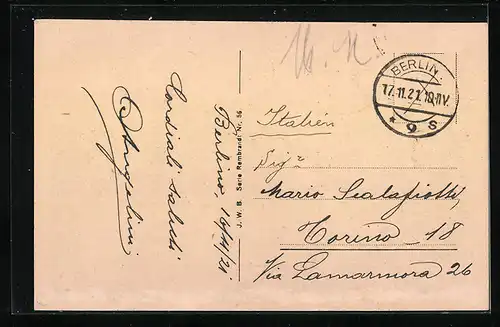 Berlino, 16/11/21
Cordiali saluti
J. W. B. Serie Rembrandt Nr. 56
BERLIN.
17.11.21.10-11V.
* 9 s
Italien
Sigr
Mario Scalafiotti,
Torino 18
Via Lamarmora 26